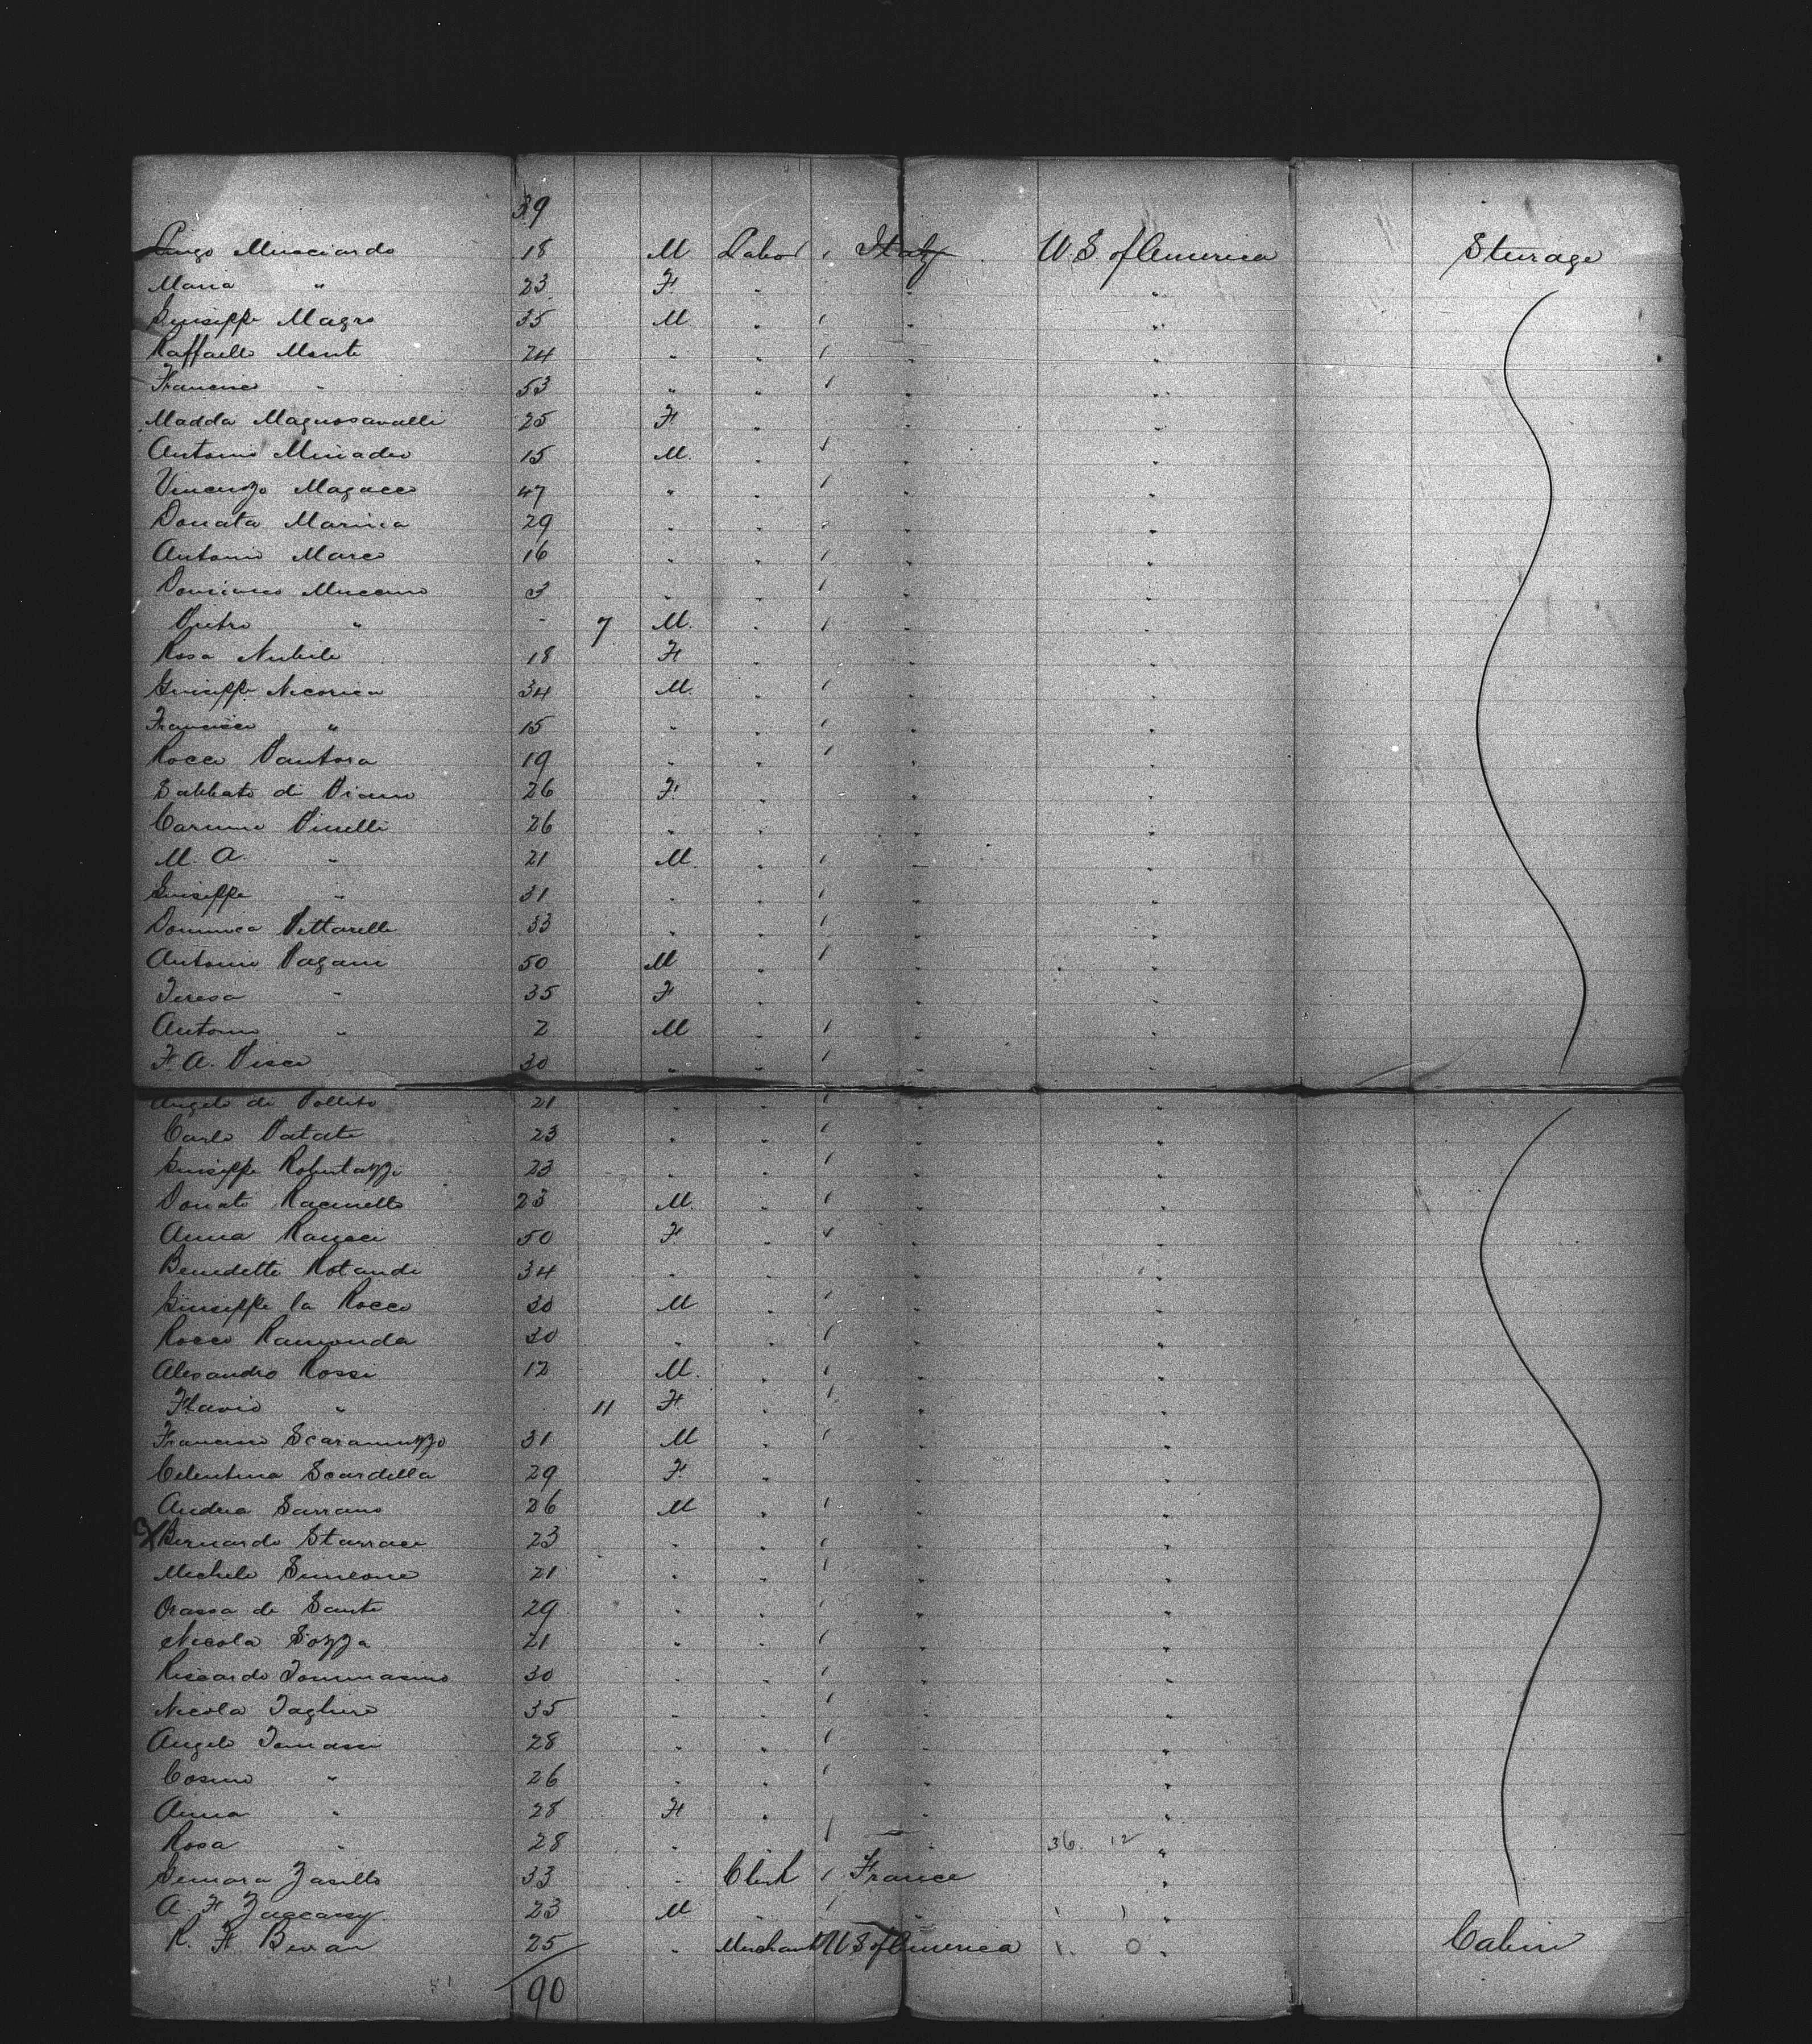 39
Luigo Musciardo 18 M Labor / Italy U. S of America Sturage
Maria " 23 F " " "
Guiseppe Magro 35 M " / " "
Raffaello Monte 24 " " / " "
Francisco " 53 " " / " "
Madda Magnosavalli 25 F " " "
Antonio Minadeo 15 M. " / " "
Vincenzo Magacco 47 " " / " "
Donata Marinca 29 " " / " "
Antonio Marco 16 " " / " "
Muccano 3 " " / " "
Pietro " - 7 M. " / " "
Rosa Nubile 18 F " " "
Guiseppe Nicorica 34 M. " / " "
Francisco " 15 " " / " "
Rocco Pantosa 19 " " / " "
Sabbato di Piano 26 F. " " "
Carmino Pinelli 26 " " " "
M. A. " 21 M " / " "
Guiseppe " 31 " " / " "
Dominica Pettarelli 33 " " / " "
Antonio Pagani 50 M " / " "
Teresa " 35 F " " "
Antonio " 2 M " / " "
F. A. Pisci 30 " " / " "
Angelo di Pollito 21 " " / " "
Carlo Patate 23 " " / " "
Guiseppe Robertazzi 23 " " / " "
Donato Racinello 23 M. " / " "
Anna Ranaci 50 F " / " "
Benedetto Rotande 34 " " " "
Guiseppe la Rocco 30 M " / " "
Rocco Ramonda 30 " " / " "
Alesandro Rossi 12 M. " / " "
Flavio " 11 F. " / " "
Francisco Scaramuzzo 31 M " / " "
Celentina Scardella 29 F. " " "
Andrea Sarrano 26 M " / " "
X Bernardo Starrace 23 " " / " "
Michele Simeone 21 " " / " "
Orassa de Sante 29 " " / " "
Nicola Sozza 21 " " / " "
Riscardo Tommasino 30 " " / " "
Nicola Tagliero 35 " " / " "
Angelo Tomassi 28 " " / " "
Cosmo " 26 " " / " "
Anna " 28 F " " "
Rosa " 28 " " / " 36. 12 "
Gemara Zasillo 33 " Clerk / France "
A. F. Zuccarey 23 M " / " 1 1 "
R. F. Bevan 25 " Merchant U S of America 1. 0 " Cabin
90